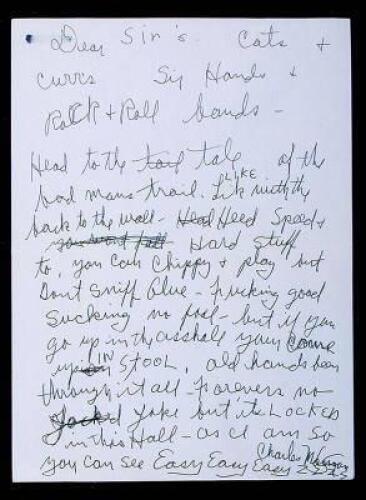 Dear Sir's. Cats &
currs Sir Hands &
Rock + Roll bands -
Head to the tail tale of the
bad mans trail. Lik LIKE with the
back to the wall - Head Heed Speed &
you wont fall Hard stuff
to, you can chippy & play but
Dont sniff glue - fucking good
sucking no fool - but if you
go up in the asshole your come
up in IN STOOL, old hands been
through it all - forevers no
Jocked Joke but its LOCKED
in this Hall - as I am so
you can see Easy Easy Easy
Charles Manson